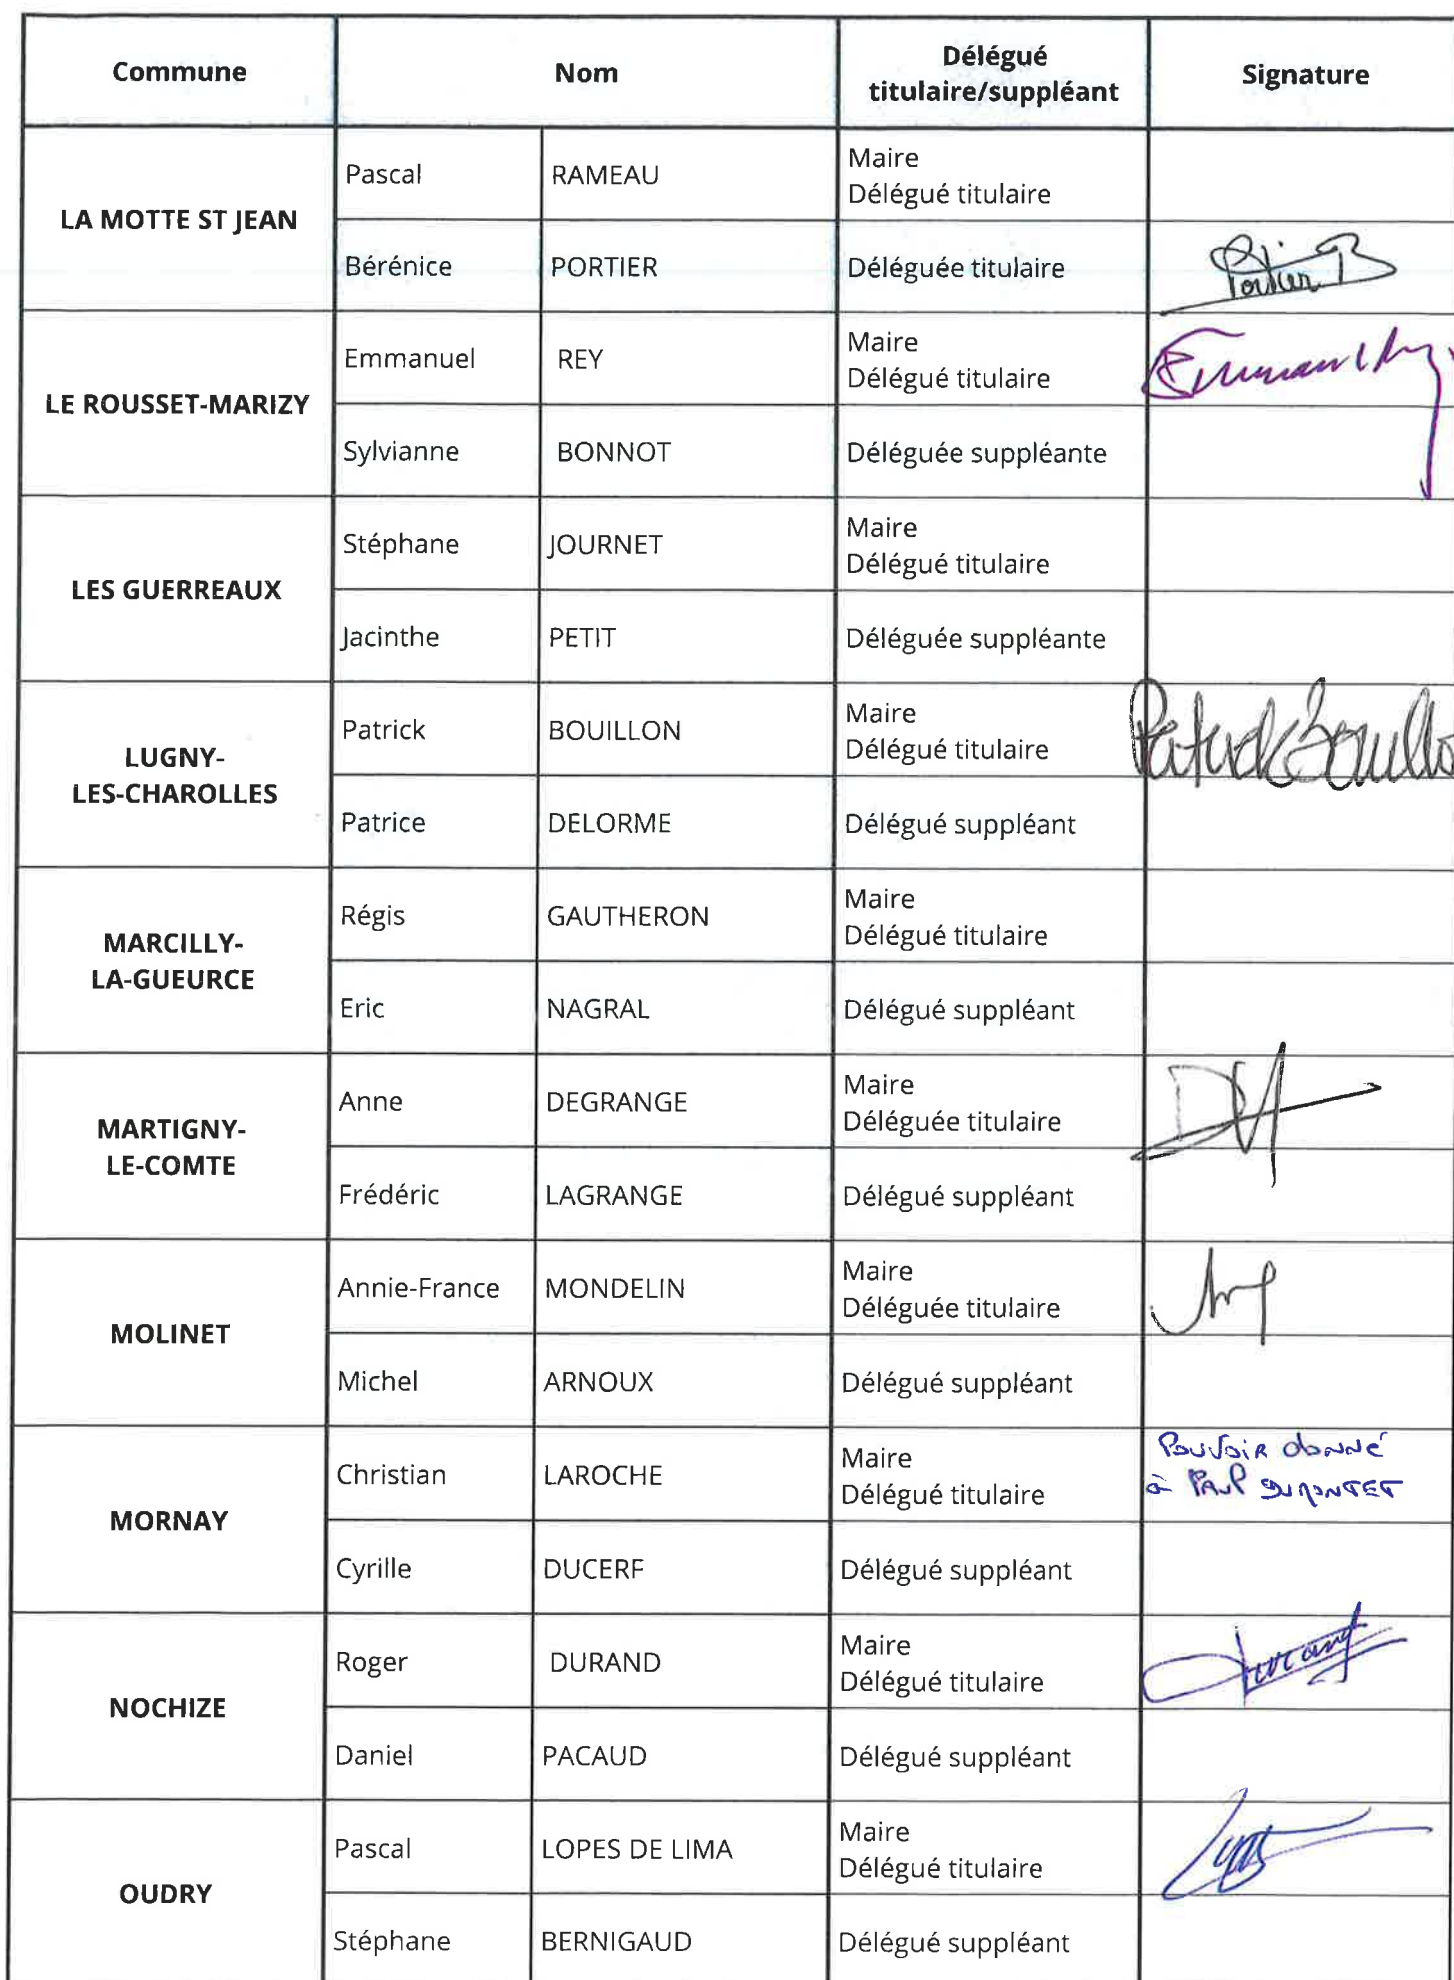 Commune Nom Délégué titulaire/suppléant Signature
LA MOTTE ST JEAN
Pascal RAMEAU Maire
Délégué titulaire
Bérénice PORTIER Déléguée titulaire Portier B
LE ROUSSET-MARIZY
Emmanuel REY Maire
Délégué titulaire
Sylvianne BONNOT Déléguée suppléante
LES GUERREAUX
Stéphane JOURNET Maire
Délégué titulaire
Jacinthe PETIT Déléguée suppléante
LUGNY-
LES-CHAROLLES
Patrick BOUILLON Maire
Délégué titulaire Patrick Bouillo
Patrice DELORME Délégué suppléant
MARCILLY-
LA-GUEURCE
Régis GAUTHERON Maire
Délégué titulaire
Eric NAGRAL Délégué suppléant
MARTIGNY-
LE-COMTE
Anne DEGRANGE Maire
Déléguée titulaire
Frédéric LAGRANGE Délégué suppléant
MOLINET
Annie-France MONDELIN Maire
Déléguée titulaire
Michel ARNOUX Délégué suppléant
MORNAY
Christian LAROCHE Maire
Délégué titulaire
Pouvoir donné
à PAUL DUMONTET
Cyrille DUCERF Délégué suppléant
NOCHIZE
Roger DURAND Maire
Délégué titulaire Durand
Daniel PACAUD Délégué suppléant
OUDRY
Pascal LOPES DE LIMA Maire
Délégué titulaire
Stéphane BERNIGAUD Délégué suppléant